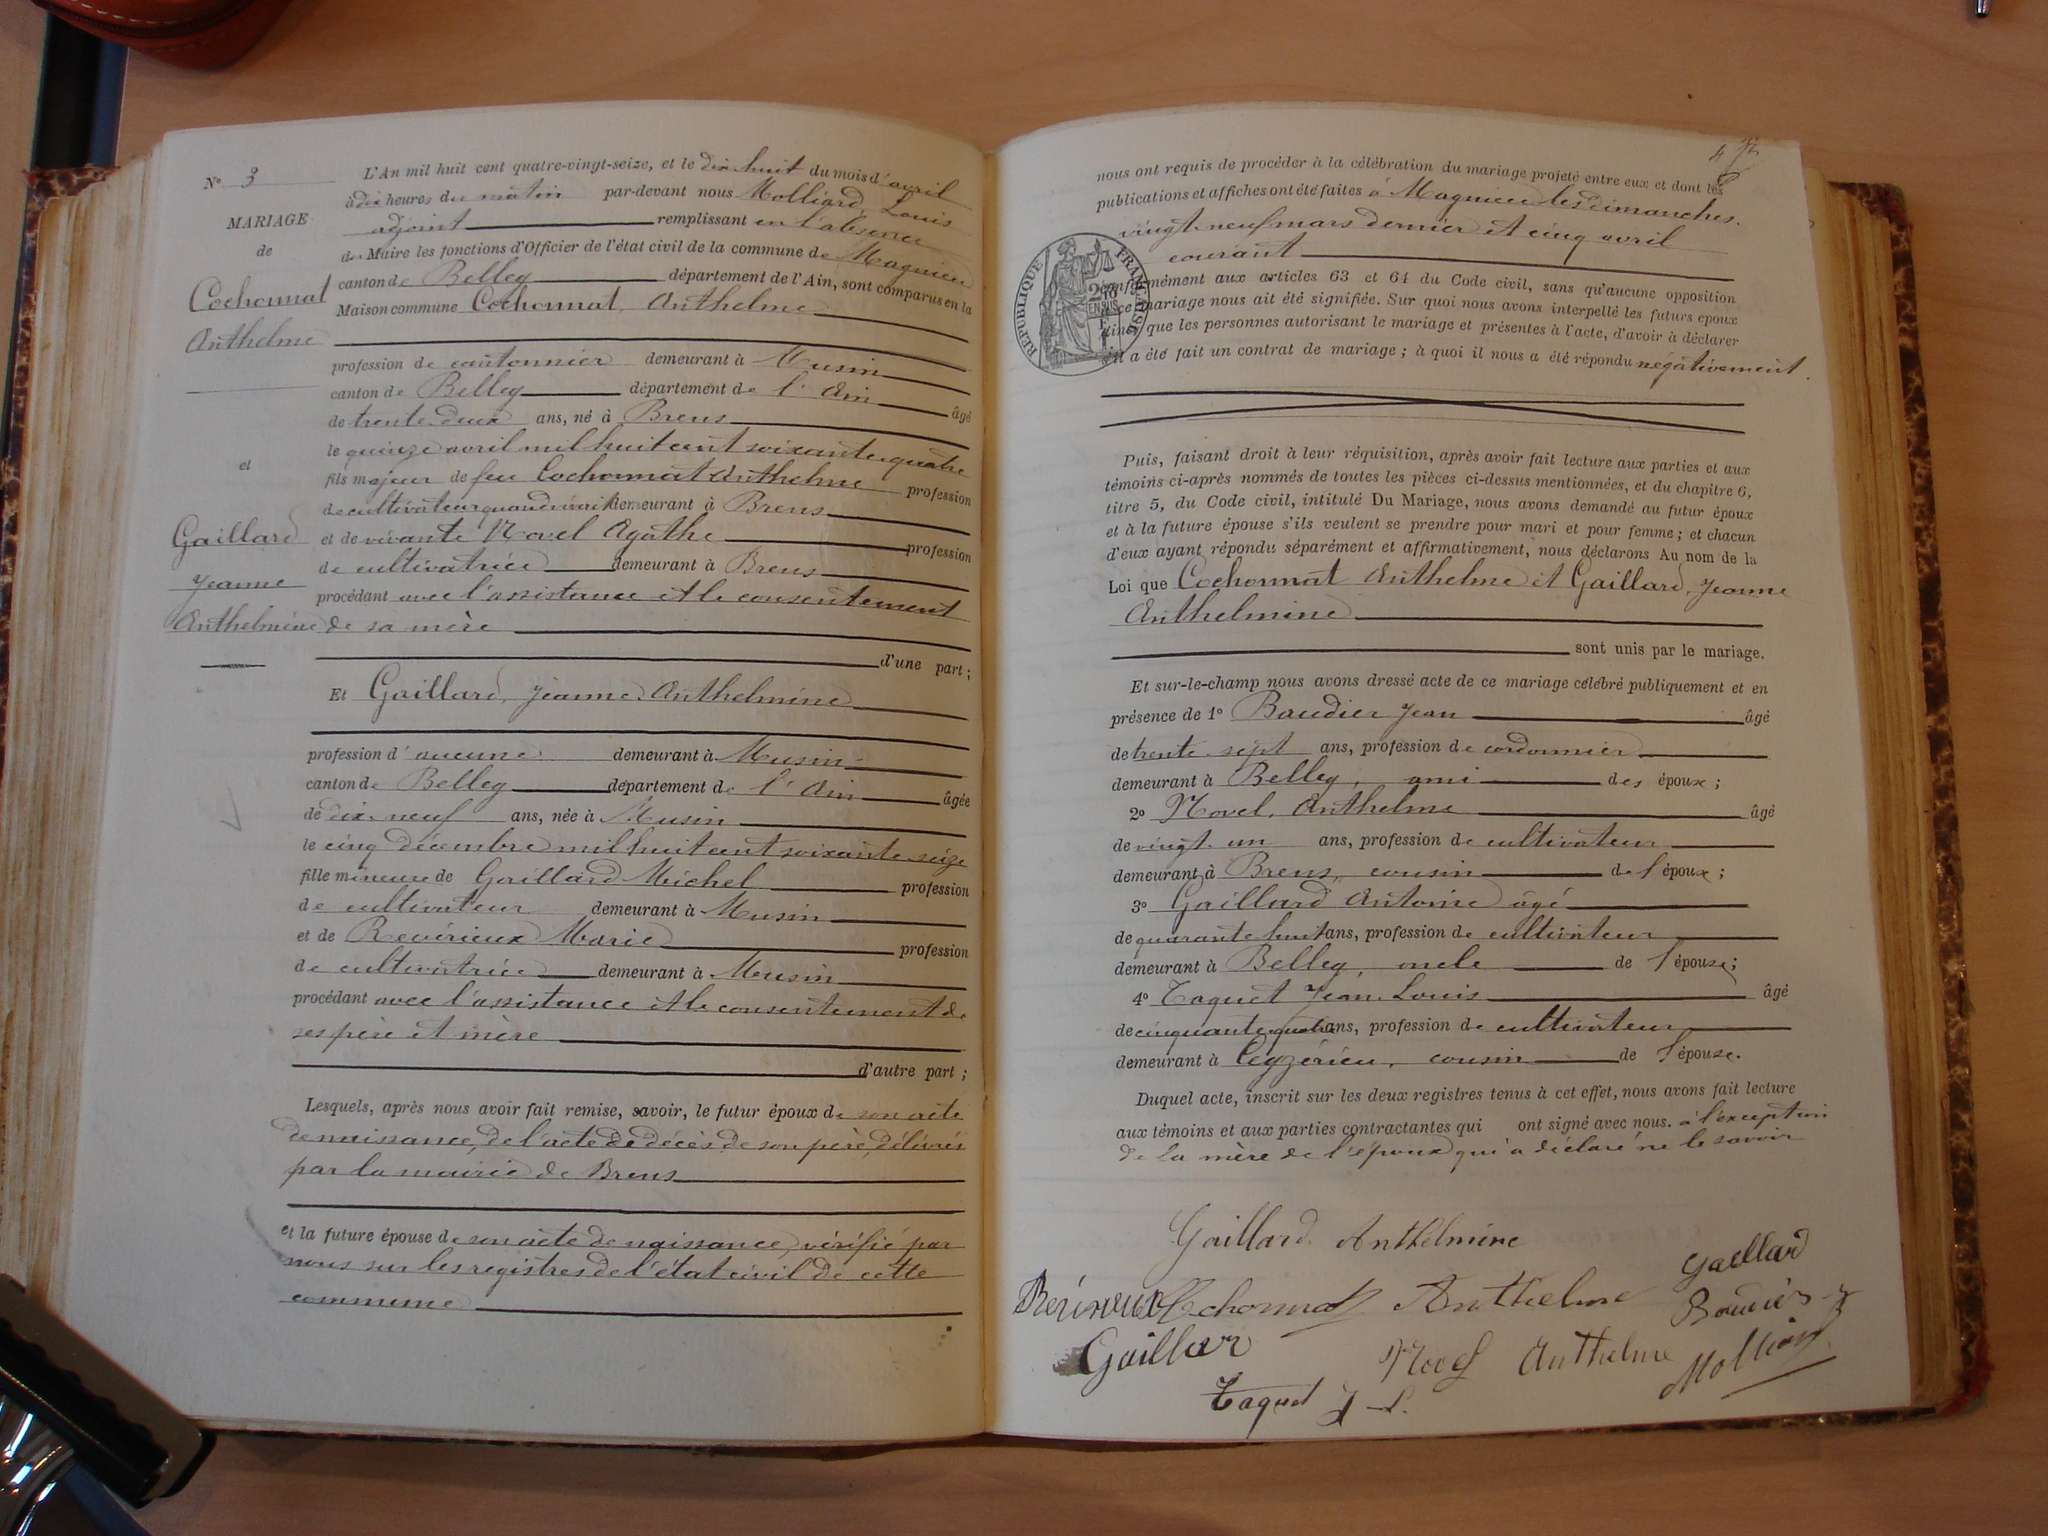 N° 3
MARIAGE
de
Cochonnat
Anthelme
et
Gaillard
Jeanne
Anthelmine
L'An mil huit cent quatre-vingt-seize, et le dix huit du mois d'avril
à dix heures du matin par-devant nous Molliard Louis
adjoint remplissant en l'absence
du Maire les fonctions d'Officier de l'état civil de la commune de Magnieu
canton de Belley département de l'Ain, sont comparus en la
Maison commune Cochonnat, Anthelme
profession de cantonnier demeurant à Musin
canton de Belley département de l'Ain âgé
de trente deux ans, né à Brens
le quinze avril mil huit cent soixante quatre
fils majeur de feu Cochonnat Anthelme profession
de cultivateur quand vivait demeurant à Brens
et de vivante Novel Agathe profession
de cultivatrice demeurant à Brens
procédant avec l'assistance et le consentement
de sa mère
d'une part ;
Et Gaillard, Jeanne Anthelmine
profession d'aucune demeurant à Musin
canton de Belley département de l'Ain âgée
de dix-neuf ans, née à Musin
le cinq décembre mil huit cent soixante seize
fille mineure de Gaillard Michel profession
de cultivateur demeurant à Musin
et de Revérieux Marie profession
de cultivatrice demeurant à Musin
procédant avec l'assistance et le consentement de
ses père et mère
d'autre part ;
Lesquels, après nous avoir fait remise, savoir, le futur époux de son acte
de naissance, de l'acte de décès de son père, délivrés
par la mairie de Brens
et la future épouse de son acte de naissance, vérifié par
nous sur les registres de l'état civil de cette
commune
nous ont requis de procéder à la célébration du mariage projeté entre eux et dont les
publications et affiches ont été faites à Magnieu les dimanches
vingt-neuf mars dernier et cinq avril
courant
RÉPUBLIQUE FRANÇAISE
conformément aux articles 63 et 64 du Code civil, sans qu'aucune opposition
à ce mariage nous ait été signifiée. Sur quoi nous avons interpellé les futurs époux
ainsi que les personnes autorisant le mariage et présentes à l'acte, d'avoir à déclarer
s'il a été fait un contrat de mariage ; à quoi il nous a été répondu négativement.
Puis, faisant droit à leur réquisition, après avoir fait lecture aux parties et aux
témoins ci-après nommés de toutes les pièces ci-dessus mentionnées, et du chapitre 6,
titre 5, du Code civil, intitulé Du Mariage, nous avons demandé au futur époux
et à la future épouse s'ils veulent se prendre pour mari et pour femme ; et chacun
d'eux ayant répondu séparément et affirmativement, nous déclarons Au nom de la
Loi que Cochonnat Anthelme et Gaillard, Jeanne
Anthelmine
sont unis par le mariage.
Et sur-le-champ nous avons dressé acte de ce mariage célébré publiquement et en
présence de 1° Baudier Jean âgé
de trente sept ans, profession de cordonnier
demeurant à Belley, ami des époux ;
2° Novel, Anthelme âgé
de vingt un ans, profession de cultivateur
demeurant à Brens, cousin de l'époux ;
3° Gaillard Antoine âgé
de quarante huit ans, profession de cultivateur
demeurant à Belley, oncle de l'épouse ;
4° Taquet Jean Louis âgé
de cinquante quatre ans, profession de cultivateur
demeurant à Ceyzérieu, cousin de l'épouse.
Duquel acte, inscrit sur les deux registres tenus à cet effet, nous avons fait lecture
aux témoins et aux parties contractantes qui ont signé avec nous. à l'exception
de la mère de l'époux qui a déclaré ne le savoir
Gaillard Anthelmine
Gaillard
Cochonnat Anthelme
Baudier J
Gaillard
Novel Anthelme
Molliard
Taquet J L.